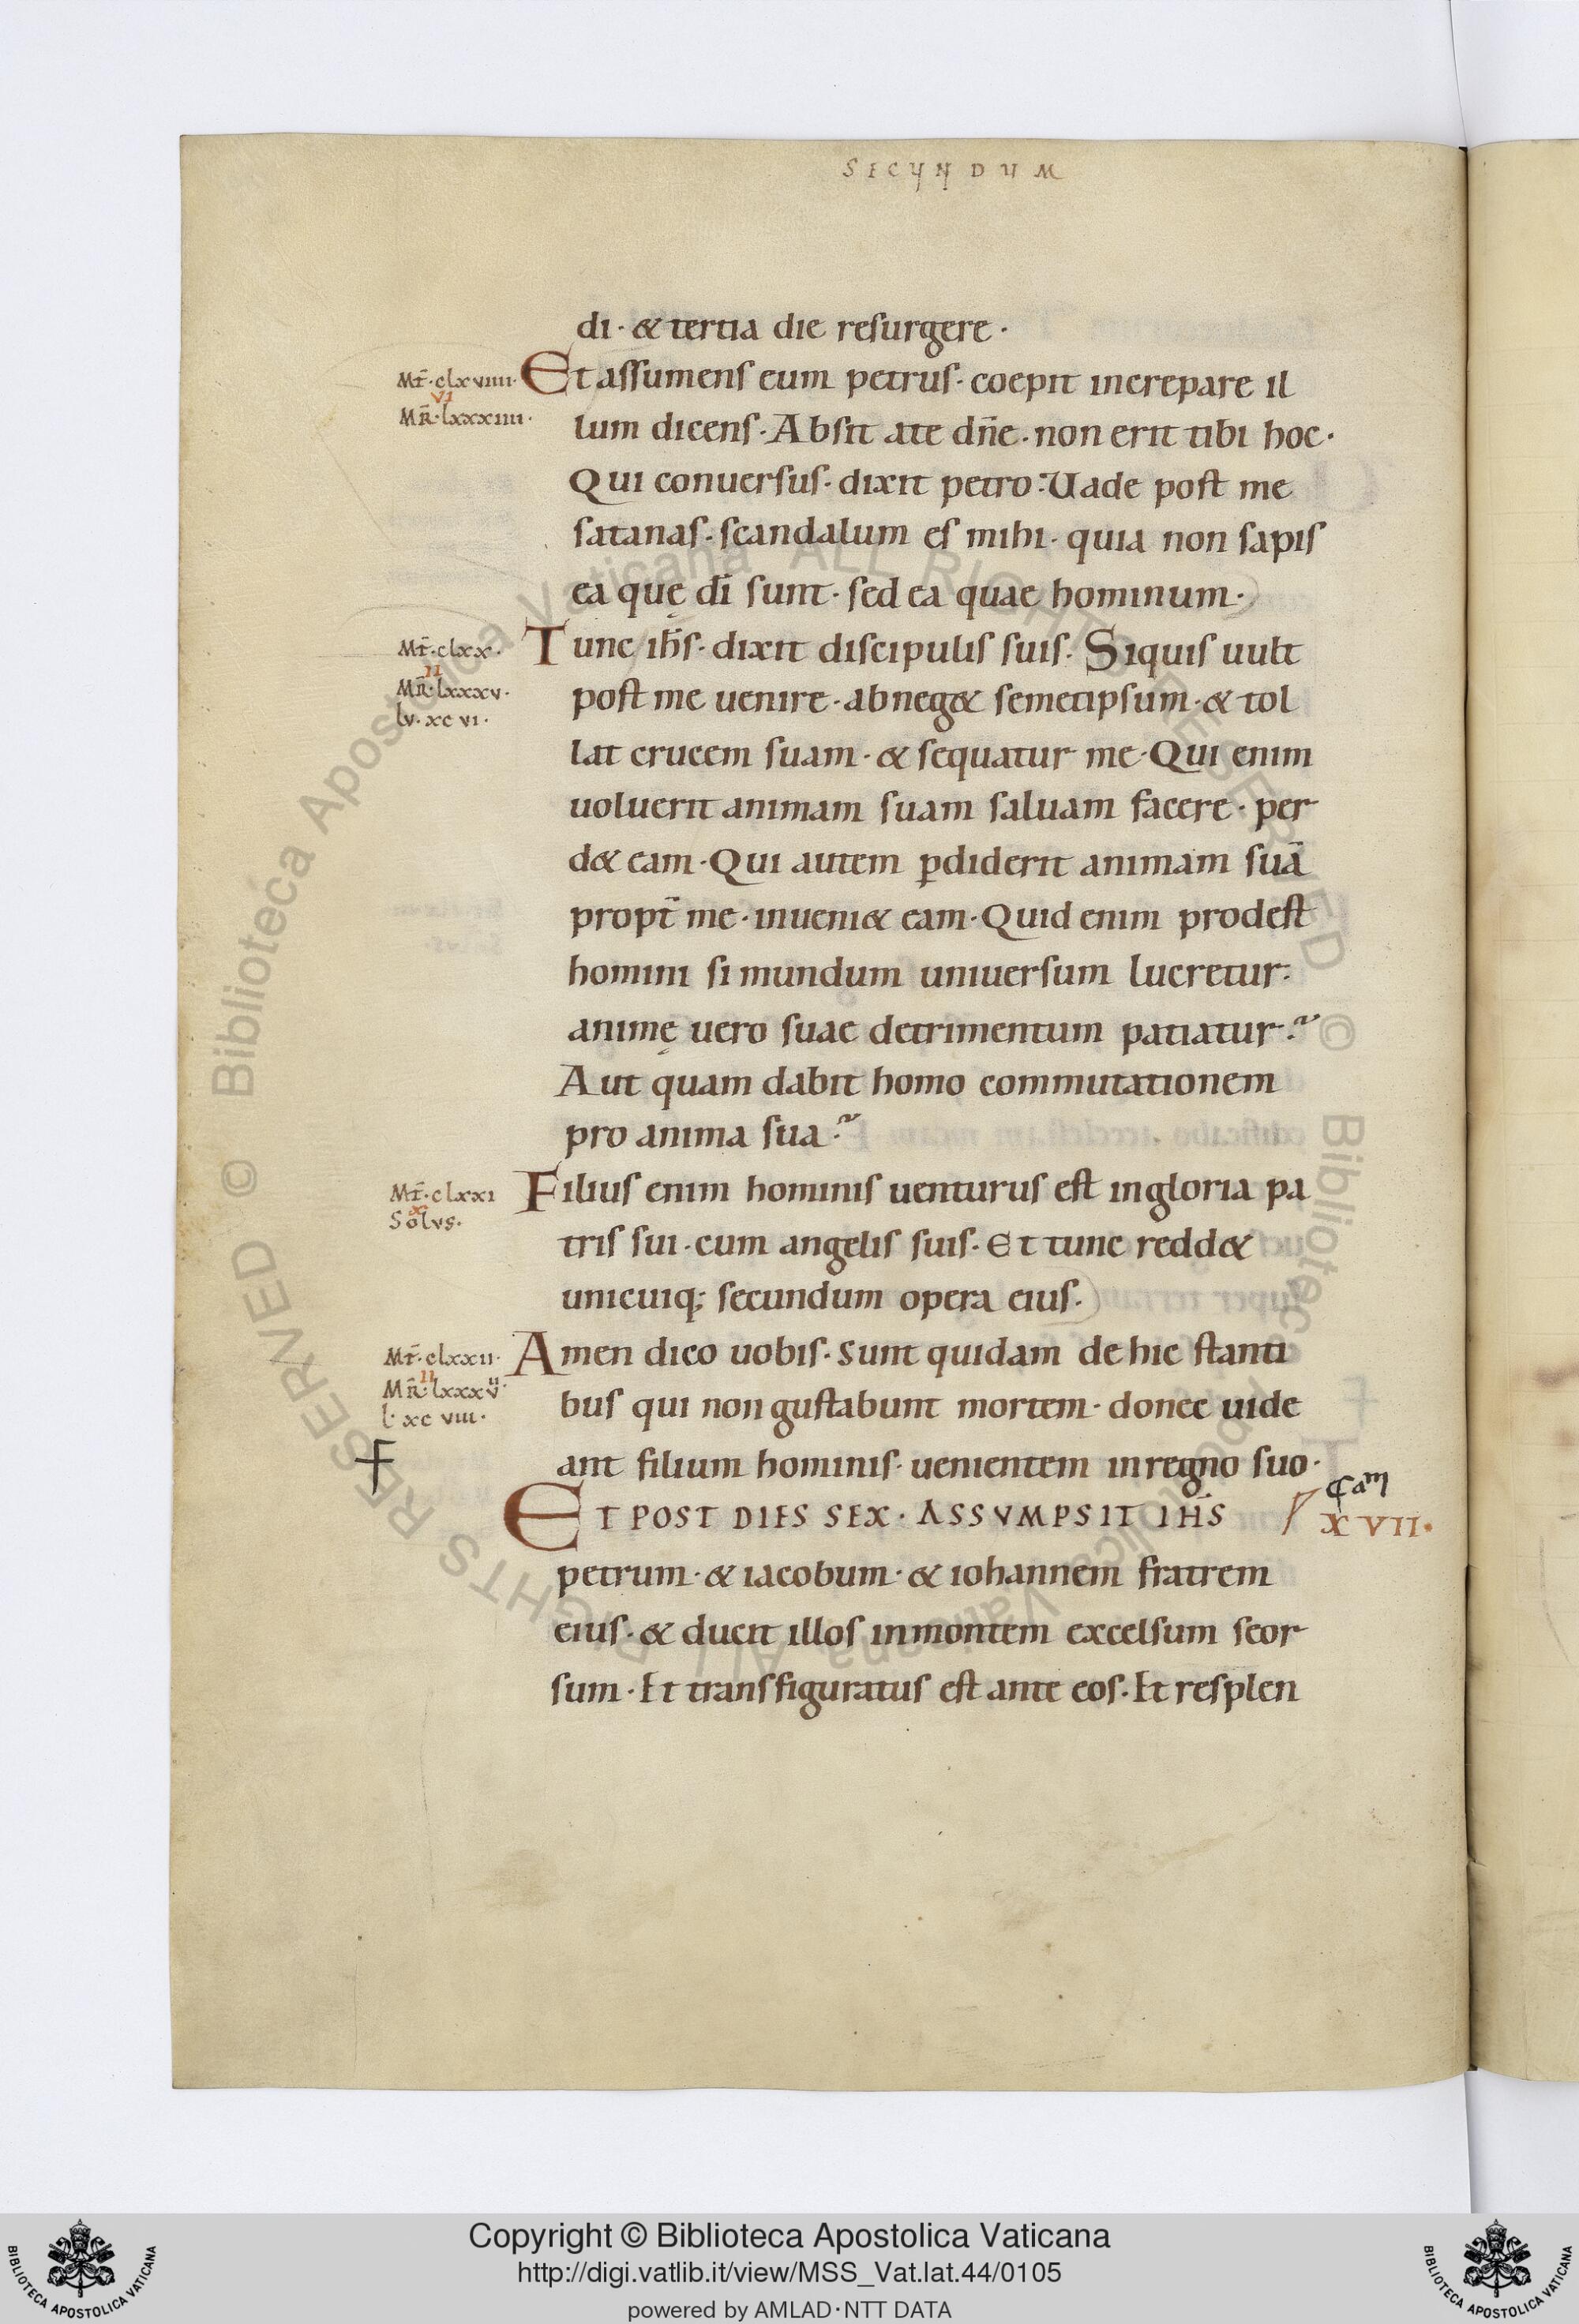 SECUNDUM
di · & tertia die resurgere ·
Mt̄ · clxviiii ·
vi
MR̄ · lxxxiiii ·
Et assumens eum petrus · coepit increpare il
lum dicens · Absit ate dn̄e · non erit tibi hoc ·
Qui conuersus · dixit petro : Uade post me
satanas · scandalum es mihi · quia non sapis
ea quę dī sunt · sed ea quae hominum ·
Mt̄ · clxx ·
ii
MR̄ · lxxxv ·
lv · xc vi ·
Tunc ih̄s · dixit discipulis suis · Siquis uult
post me uenire · abneg& semetipsum · & tol
lat crucem suam · & sequatur me · Qui enim
uoluerit animam suam saluam facere · per
d& eam · Qui autem ꝑdiderit animam suā
propt̄ me · inueni& eam · Quid enim prodest
homini si mundum uniuersum lucretur :
animę uero suae detrimentum patiatur ?
Aut quam dabit homo commutationem
pro anima sua ?
Mt̄ · clxxi
x
Solvs ·
Filius enim hominis uenturus est ingloria pa
tris sui · cum angelis suis · Et tunc redd&
unicuiq; secundum opera eius ·
Mt̄ · clxxii ·
ii
MR̄ · lxxxvii ·
l · xc viii ·
Amen dico uobis · Sunt quidam de hic stanti
bus qui non gustabunt mortem · donec uide
ant filium hominis · uenientem inregno suo ·
Cam
XVII ·
ET POST DIES SEX · ASSVMPSIT IH̄S
petrum · & iacobum · & iohannem fratrem
eius · & ducit illos inmontem excelsum seor
sum · Et transfiguratus est ante eos · Et resplen
© Biblioteca Apostolica Vaticana ALL RIGHTS RESERVED © Biblioteca Apostolica Vaticana ALL RIGHTS RESERVED
Copyright © Biblioteca Apostolica Vaticana
http://digi.vatlib.it/view/MSS_Vat.lat.44/0105
powered by AMLAD · NTT DATA
BIBLIOTECA APOSTOLICA VATICANA
BIBLIOTECA APOSTOLICA VATICANA